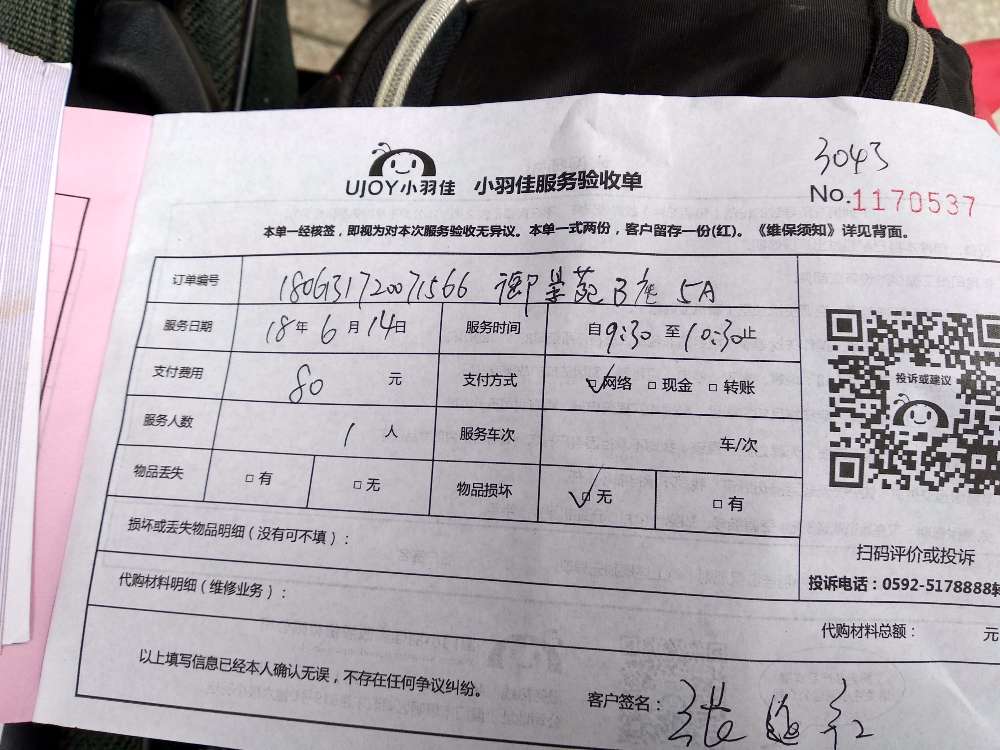 3043
UJOY小羽佳 小羽佳服务验收单
No.1170537
本单一经核签，即视为对本次服务验收无异议。本单一式两份，客户留存一份(红)。《维保须知》详见背面。
订单编号 180631720071566 御景苑B座 5A
服务日期 18年6月14日 服务时间 自9:30至10:30止
支付费用 80 元 支付方式 ☑网络 □现金 □转账
服务人数 1 人 服务车次 车/次
物品丢失 □有 □无 物品损坏 ☑无 □有
投诉或建议
损坏或丢失物品明细（没有可不填）：
扫码评价或投诉
投诉电话：0592-5178888转
代购材料明细（维修业务）：
代购材料总额： 元
以上填写信息已经本人确认无误，不存在任何争议纠纷。
客户签名：